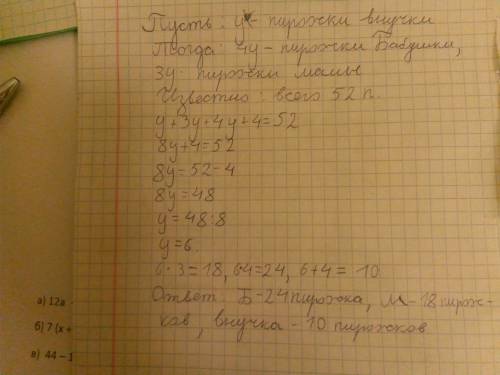 Пусть: y - пирожки внучки
Тогда: 4y - пирожки Бабушки,
3y - пирожки мамы
Известно: всего 52 п.
y+3y+4y+4=52
8y+4=52
8y=52-4
8y=48
y=48:8
y=6.
6·3=18, 6·4=24, 6+4=10
Ответ: Б-24 пирожка, М-18 пирож-
ков, внучка - 10 пирожков
а) 12а
б) 7(х +
в) 44 – 1